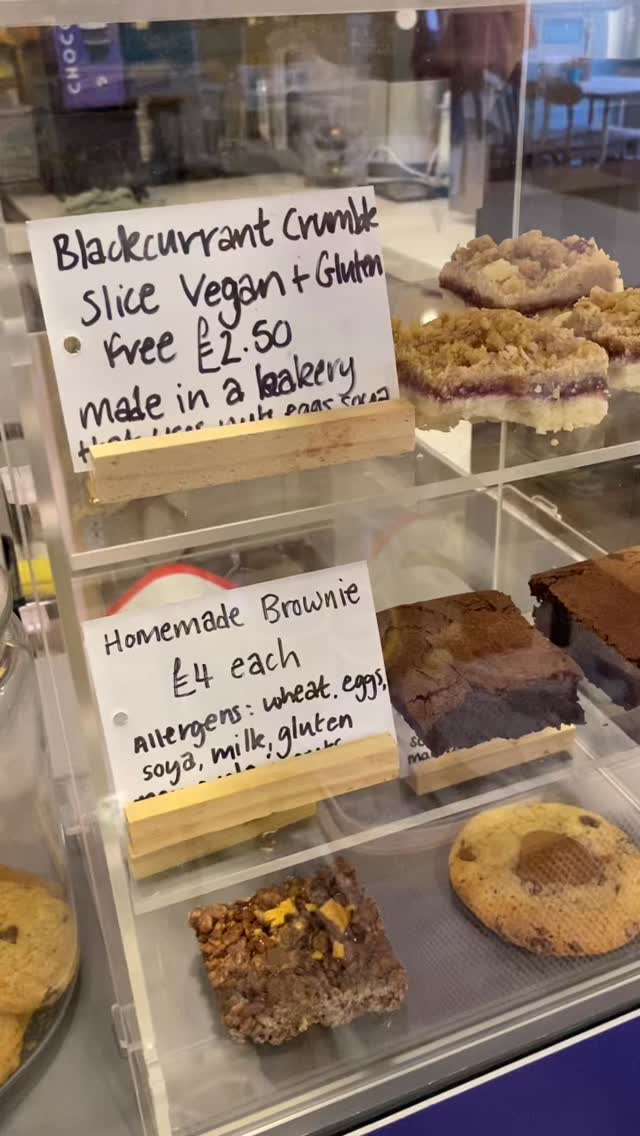 CHOC
Blackcurrant Crumble
Slice Vegan + Gluten
Free £2.50
made in a bakery
that uses nuts eggs soya
Homemade Brownie
£4 each
Allergens: wheat, eggs,
soya, milk, gluten